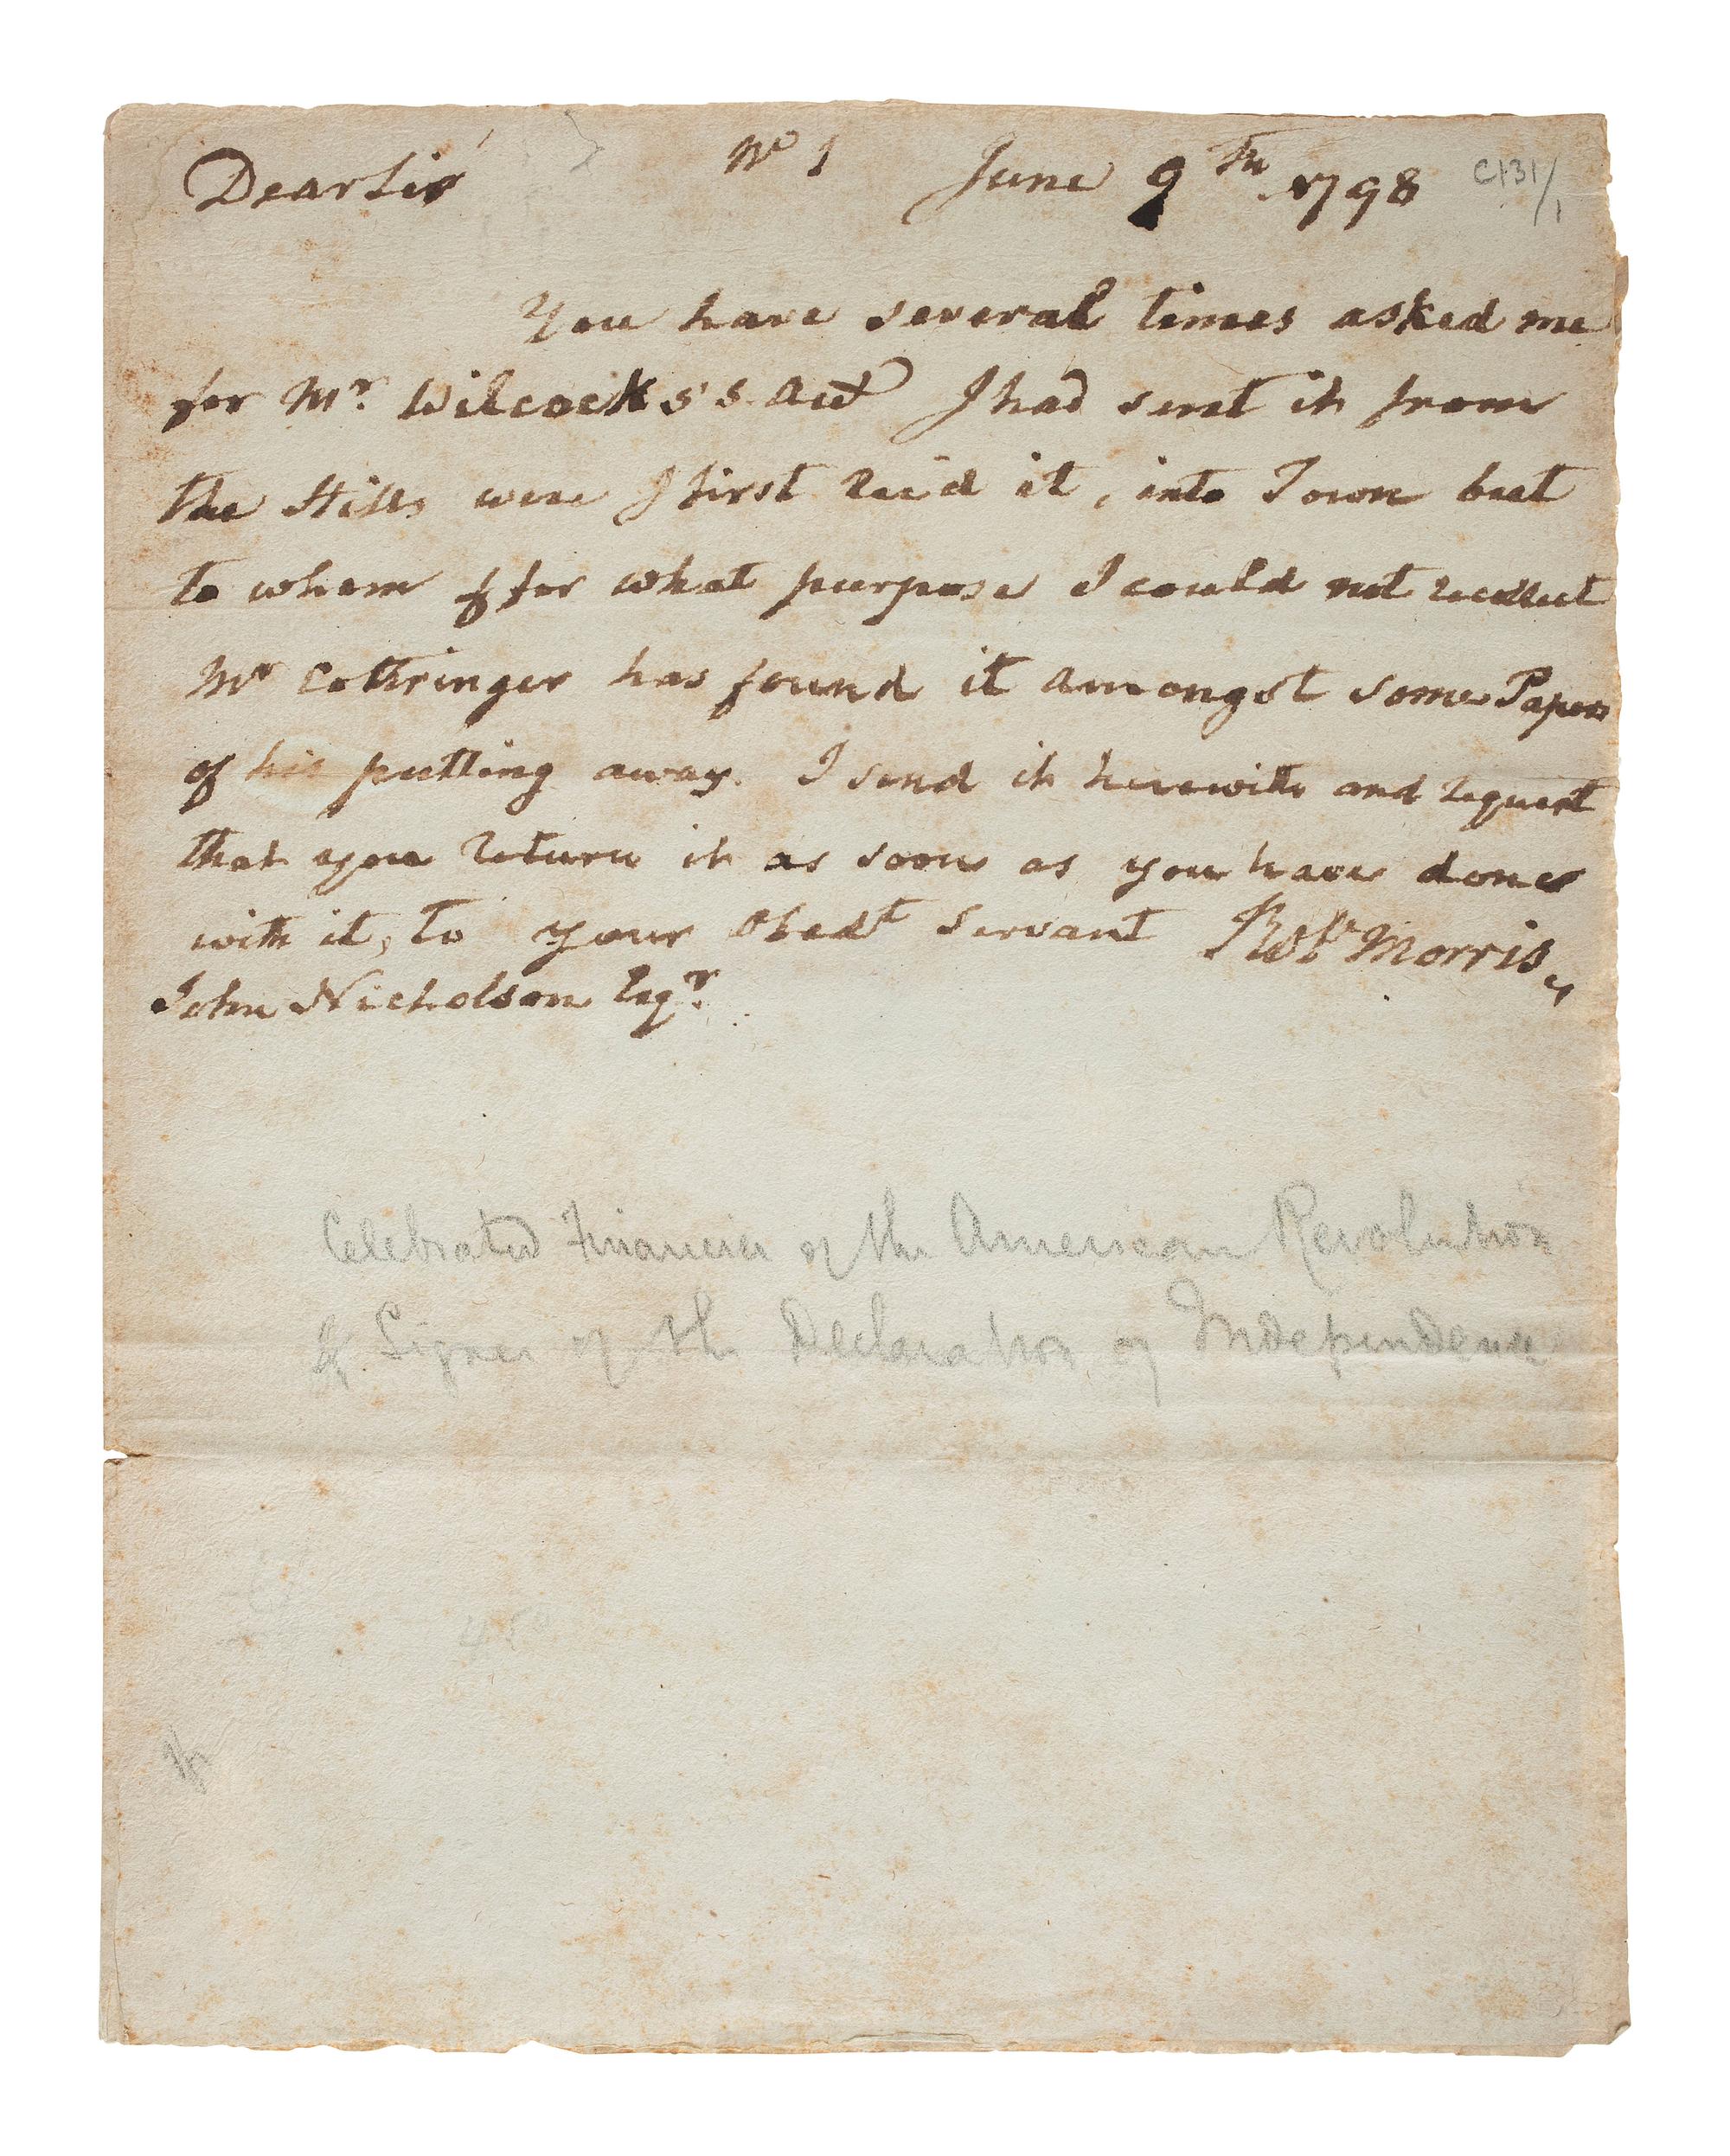 Dear Sir No 1 June 9th 1798 C131/1
You have several times asked me
for Mr. Wilcocks's acct I had sent it from
the Hills were I first rec'd it, into Town but
to whom & for what purpose I could not recollect
Mr Cottringer has found it amongst some Papers
of his putting away. I send it herewith and request
that you return it as soon as you have done
with it, to your Obedt servant Robt Morris
John Nicholson Esqr.
Celebrated Financier of the American Revolution
& Signer of the Declaration of Independence